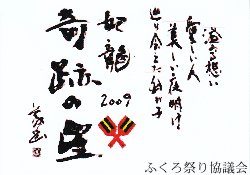 溢れる想い
愛しい人
美しい夜明け
巡り会えた動が子
妃龍
奇跡の星
2009
ふくろ祭り協議会